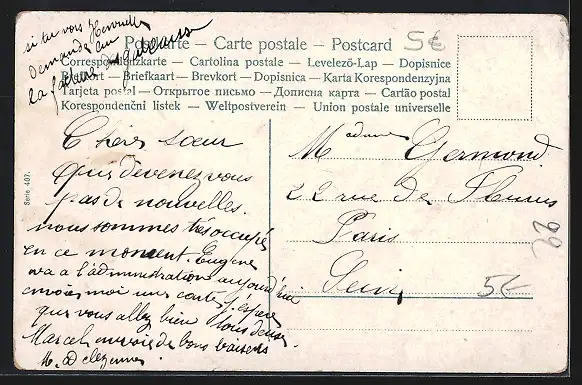 si tu vois
demande lui
la facture
Postkarte — Carte postale — Postcard
5€
Correspondenzkarte — Cartolina postale — Levelező-Lap — Dopisnice
Briefkaart — Brevkort — Dopisnica — Karta Korespondenzyjna
Tarjeta postal — Открытое письмо — Дописна карта — Cartão postal
Korespondenční listek — Weltpostverein — Union postale universelle
Serie 407.
Chère sœur
Que devenez vous
pas de nouvelles.
nous sommes très occupés
en ce moment. Eugène
va a l'administration aujourd'hui
envoies moi une carte j'espère
que vous allez bien tous deux
Marcel envoie de bons baisers
Madame Germond
22 rue de Fleurus
Paris
Seine
5€